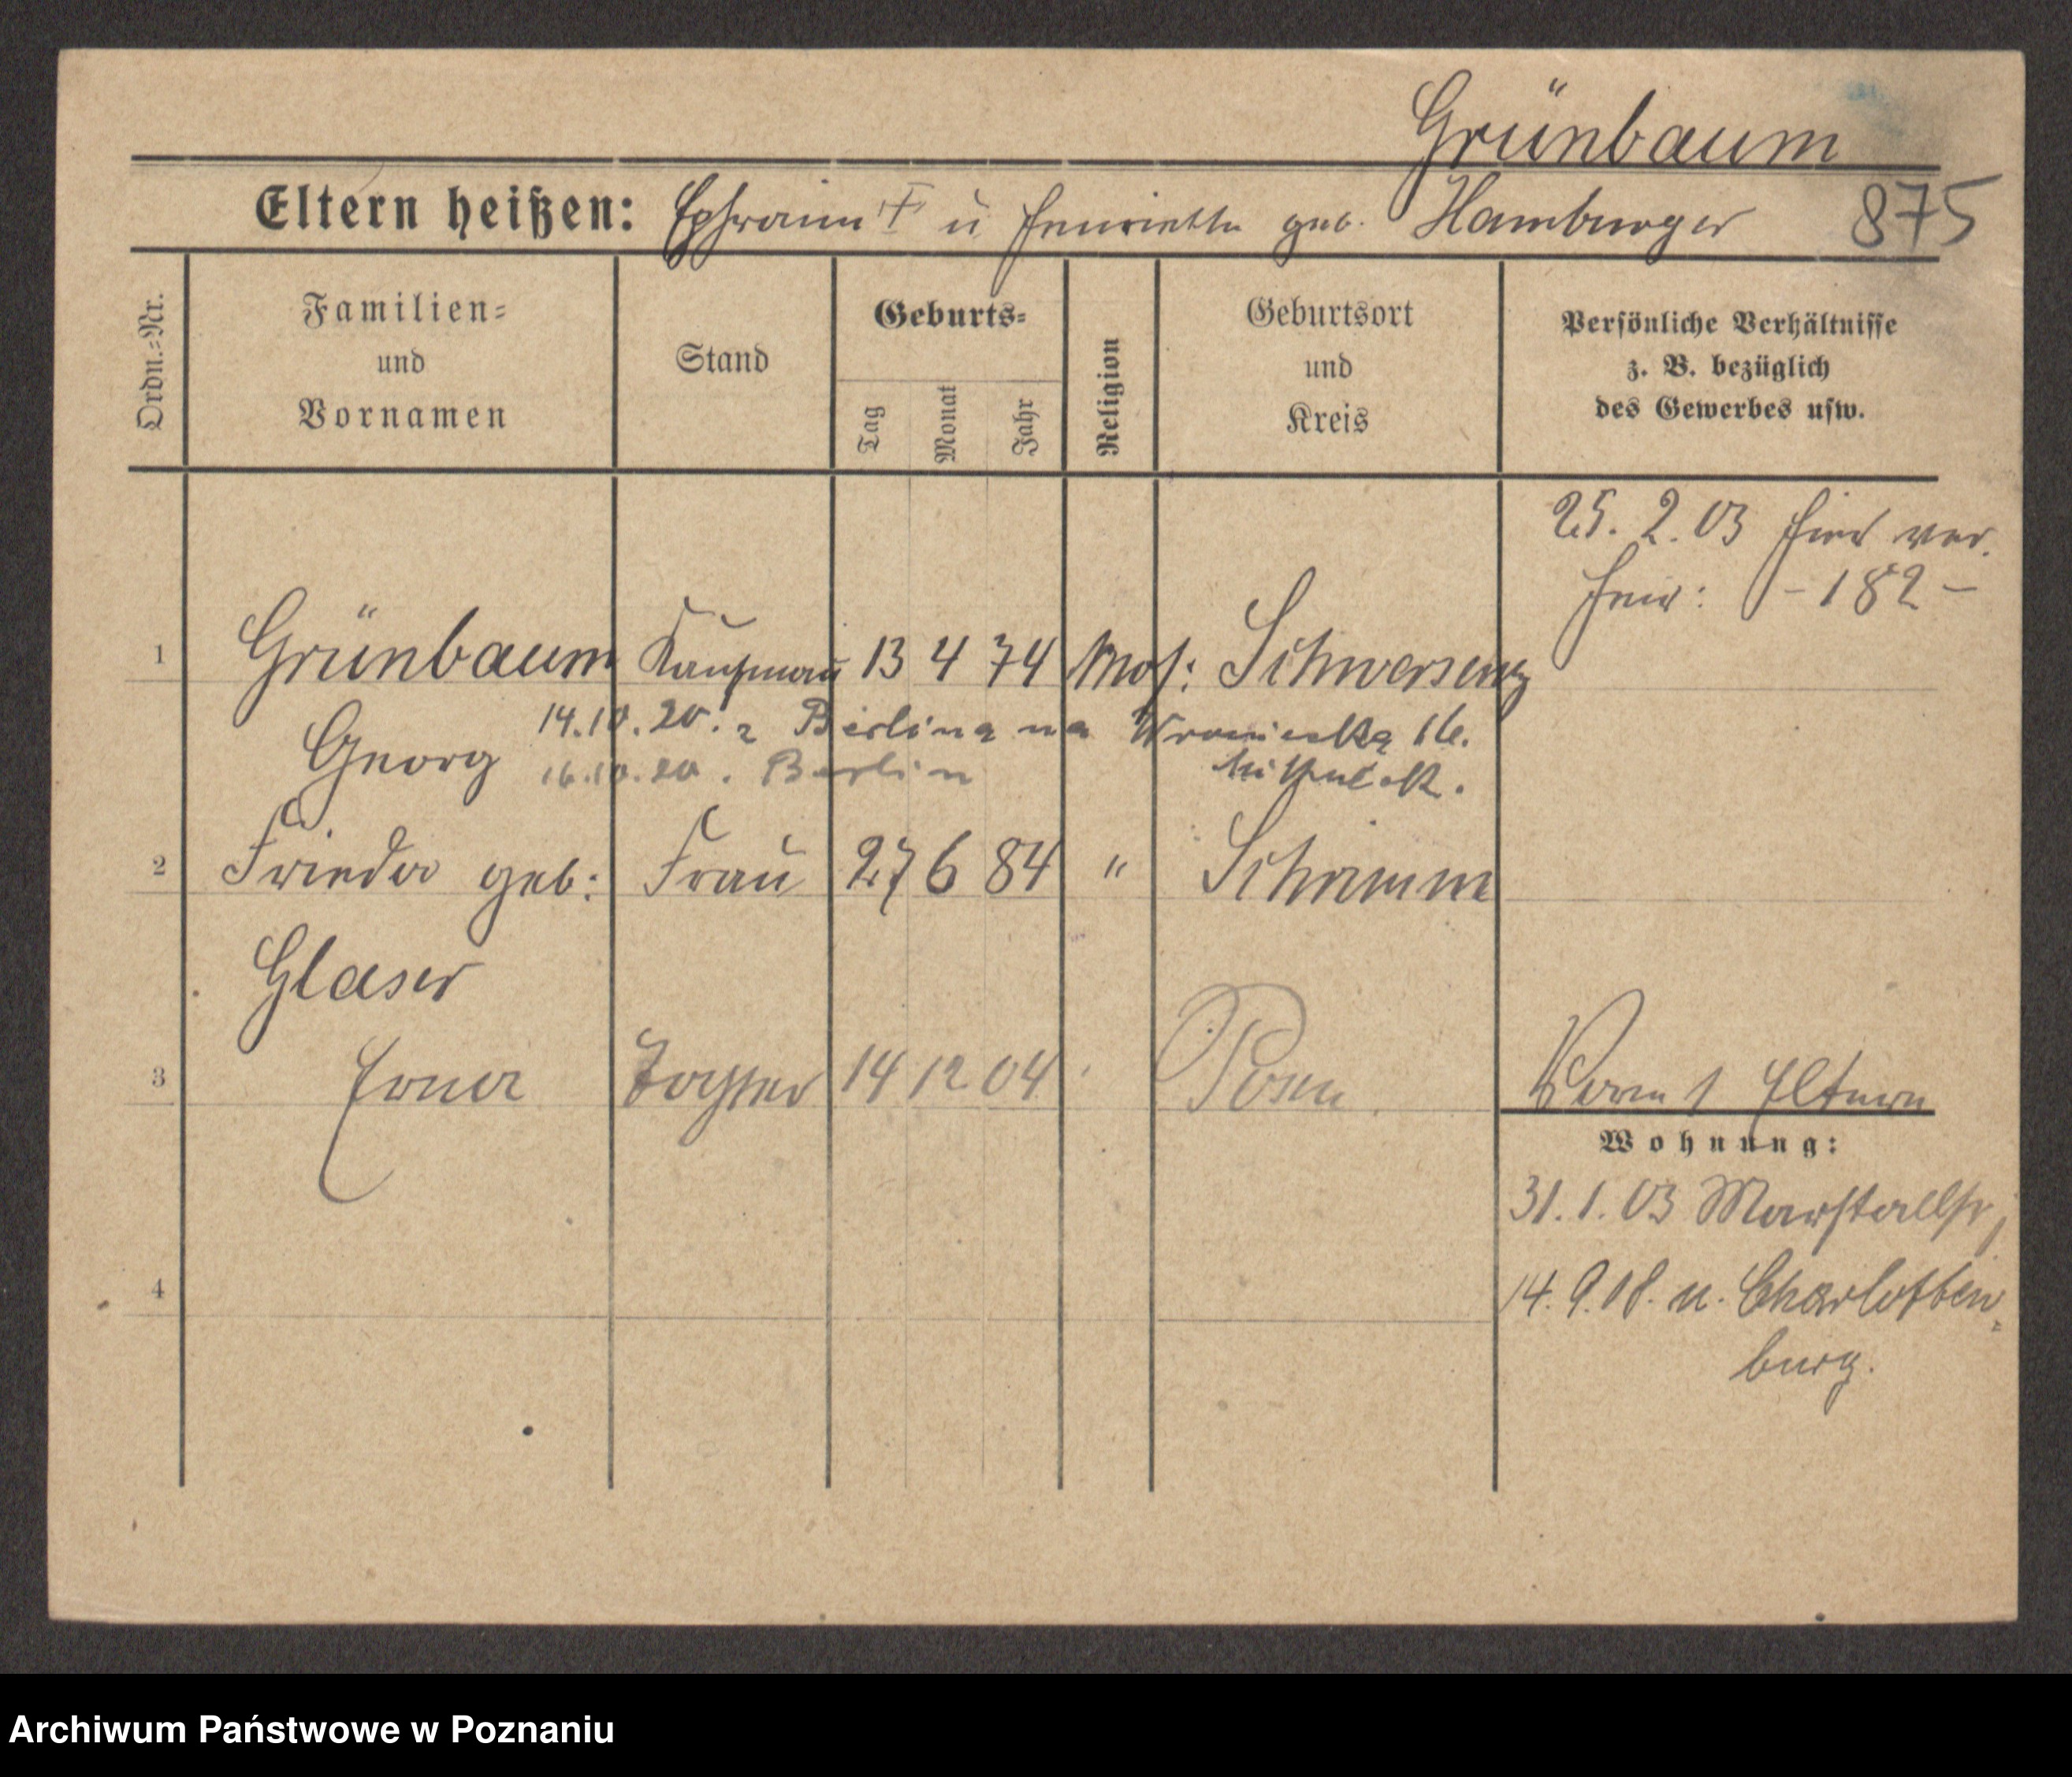 Grünbaum
Eltern heißen: Ephraim † u. Henriette geb. Hamburger 875
Ordn.=Nr.
Familien=
und
Vornamen
Stand
Geburts=
Tag
Monat
Jahr
Religion
Geburtsort
und
Kreis
Persönliche Verhältnisse
z. B. bezüglich
des Gewerbes usw.
25. 2. 03 hier ver.
heir: -182-
1 Grünbaum Kaufmann 13 4 74 Mos: Schwersenz
14.10.20. z Berlina na Wroniecka 16.
Georg
16.10.20. Berlin
2 Frieda geb: Frau 27 6 84 " Schrimm
Glaser
3 Erna Tochter 14 12 04 Posen 1 Eltern
Wohnung:
31. 1. 03 Marstallstr
4 14. 9. 08. n. Charlotten
burg.